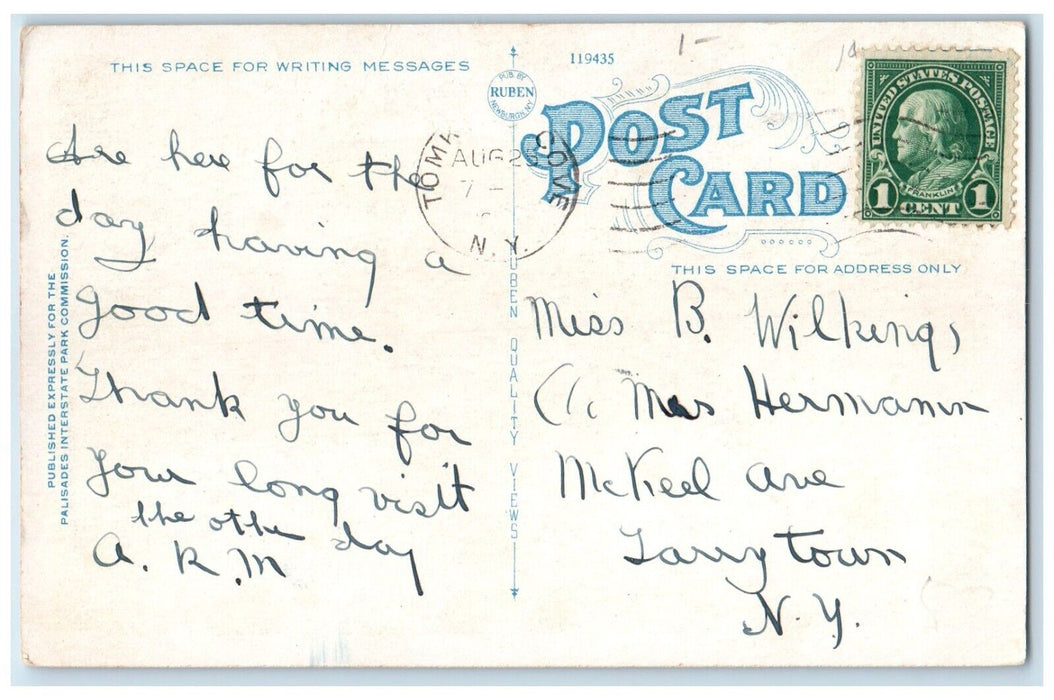 THIS SPACE FOR WRITING MESSAGES
Are here for the
day having a
good time.
Thank you for
your long visit
the other day
A. R. M
PUBLISHED EXPRESSLY FOR THE
PALISADES INTERSTATE PARK COMMISSION.
PUB. BY
RUBEN
NEWBURGH, N.Y.
RUBEN QUALITY VIEWS
119435
1-
POST
CARD
TOMK COVE
AUG 23
7 -
N. Y.
UNITED STATES POSTAGE
FRANKLIN
1 CENT 1
THIS SPACE FOR ADDRESS ONLY
Miss B. Wilkings,
C/c Mrs Hermann
McKeel Ave
Tarrytown
N.Y.